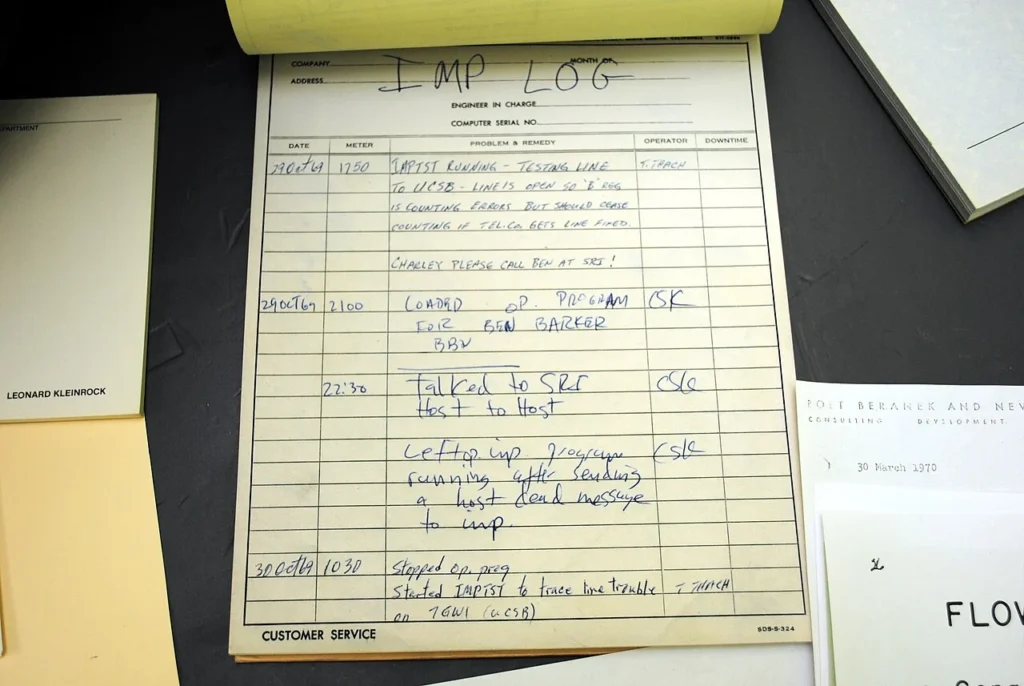 COMPANY MONTH OF
ADDRESS
IMP LOG
ENGINEER IN CHARGE
COMPUTER SERIAL NO.
DATE METER PROBLEM & REMEDY OPERATOR DOWNTIME
29OCT69 1750 IMPTST RUNNING - TESTING LINE T. THACH
TO UCSB - LINE IS OPEN SO 'B' REG
IS COUNTING ERRORS BUT SHOULD CEASE
COUNTING IF TEL.CO. GETS LINE FIXED.
CHARLEY PLEASE CALL BEN AT SRI!
29OCT69 2100 LOADED OP. PROGRAM CSK
FOR BEN BARKER
BBN
22:30 Talked to SRI CSK
Host to Host
Left op. imp. program CSK
running after sending
a host dead message
to imp.
30Oct69 1030 Stopped op. prog
Started IMPTST to trace line trouble T THACH
on (UCSB)
CUSTOMER SERVICE SDS-S-324
LEONARD KLEINROCK
BOLT BERANEK AND NEW
CONSULTING DEVELOPMENT
30 March 1970
FLOW